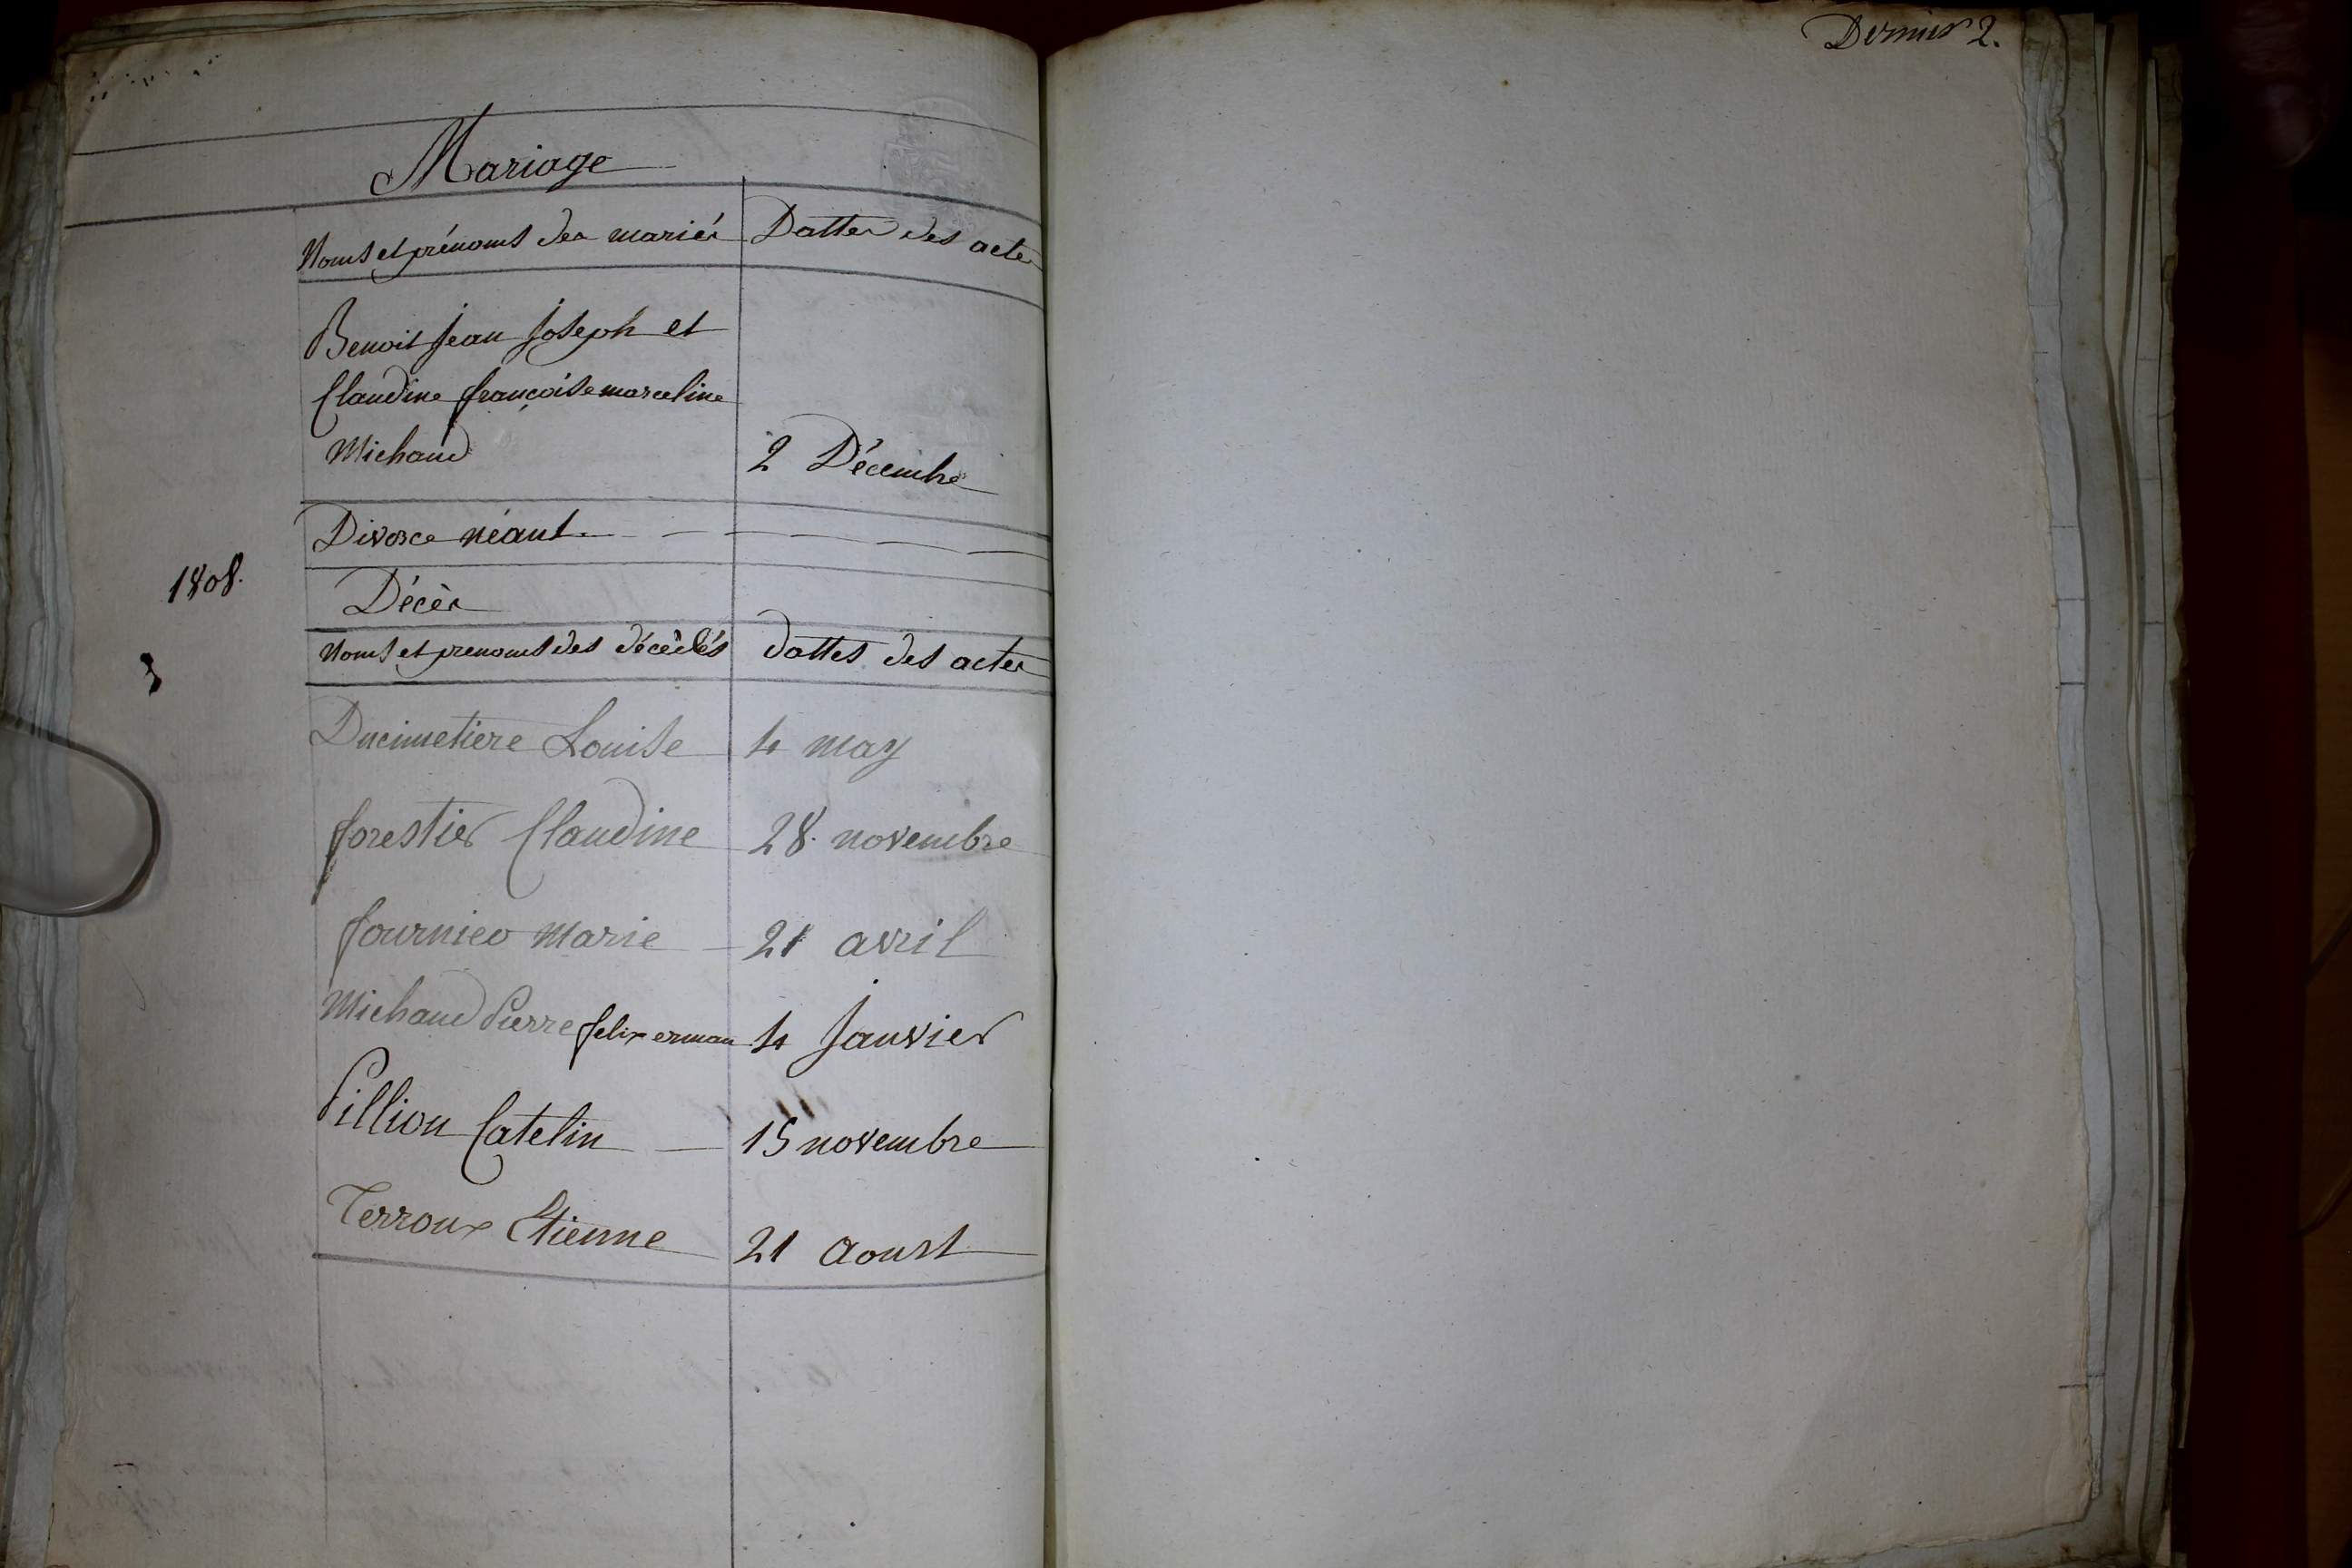 Mariage
Noms et prénoms des mariés Dattes des actes
Benoit Jean Joseph et
Claudine françoise marceline
Michaud 2 Décembre
Divorce néant
1808.
Décès
Noms et prenoms des décédés dattes des actes
3
Ducimetiere Louise 4 may
forestier Claudine 28. novembre
fournier Marie 21 avril
Michaud Pierre felix erman 4 Janvier
Pillion Catelin 15 novembre
Terroux Etienne 21 aoust
Dernier 2.